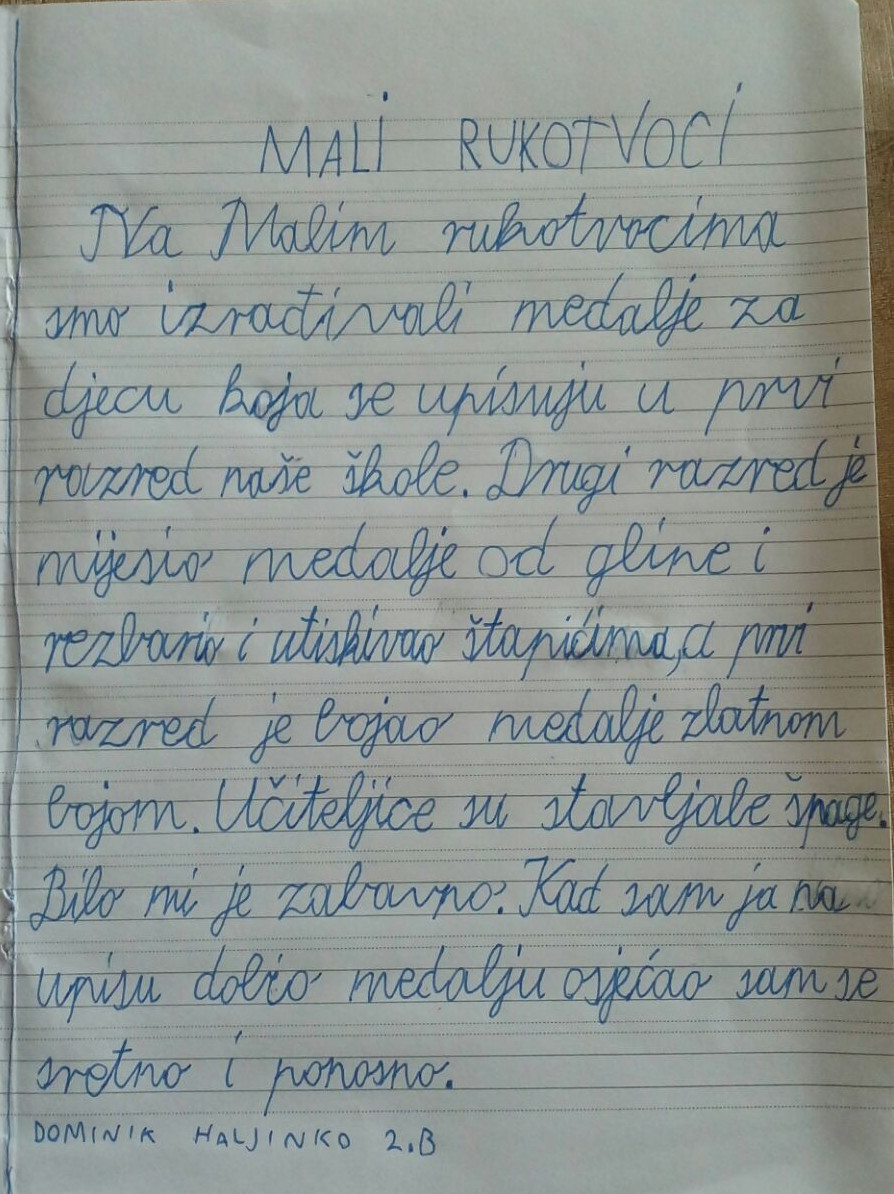 MALI RUKOTVOCI
Na Malim rukotvocima
smo izrađivali medalje za
djecu koja se upisuju u prvi
razred naše škole. Drugi razred je
mijesio medalje od gline i
rezbario i utiskivao štapićima, a prvi
razred je bojao medalje zlatnom
bojom. Učiteljice su stavljale špage.
Bilo mi je zabavno. Kad sam ja na
upisu dobio medalju osjećao sam se
sretno i ponosno.
DOMINIK HALJINKO 2.B